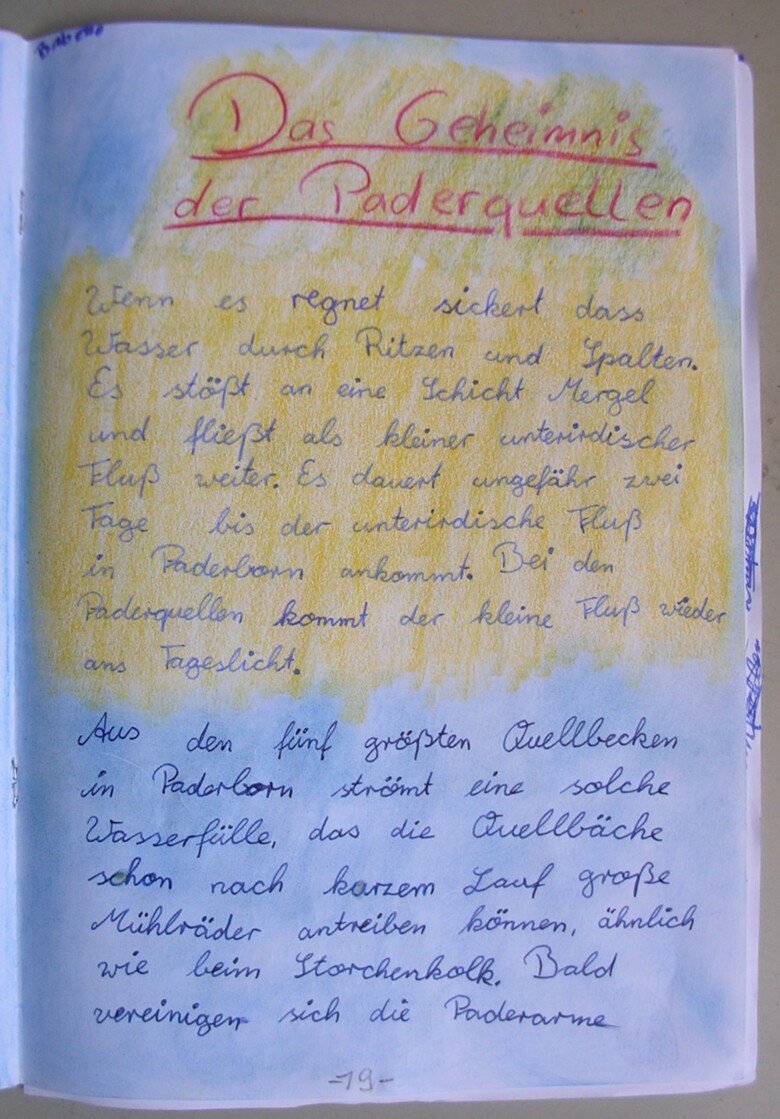 Das Geheimnis
der Paderquellen
Wenn es regnet sickert dass
Wasser durch Ritzen und Spalten.
Es stößt an eine Schicht Mergel
und fließt als kleiner unterirdischer
Fluß weiter. Es dauert ungefähr zwei
Tage bis der unterirdische Fluß
in Paderborn ankommt. Bei den
Paderquellen kommt der kleine Fluß wieder
ans Tageslicht.
Aus den fünf größten Quellbecken
in Paderborn strömt eine solche
Wasserfülle, das die Quellbäche
schon nach kurzem Lauf große
Mühlräder antreiben können, ähnlich
wie beim Storchenkolk. Bald
vereinigen sich die Paderarme
-19-